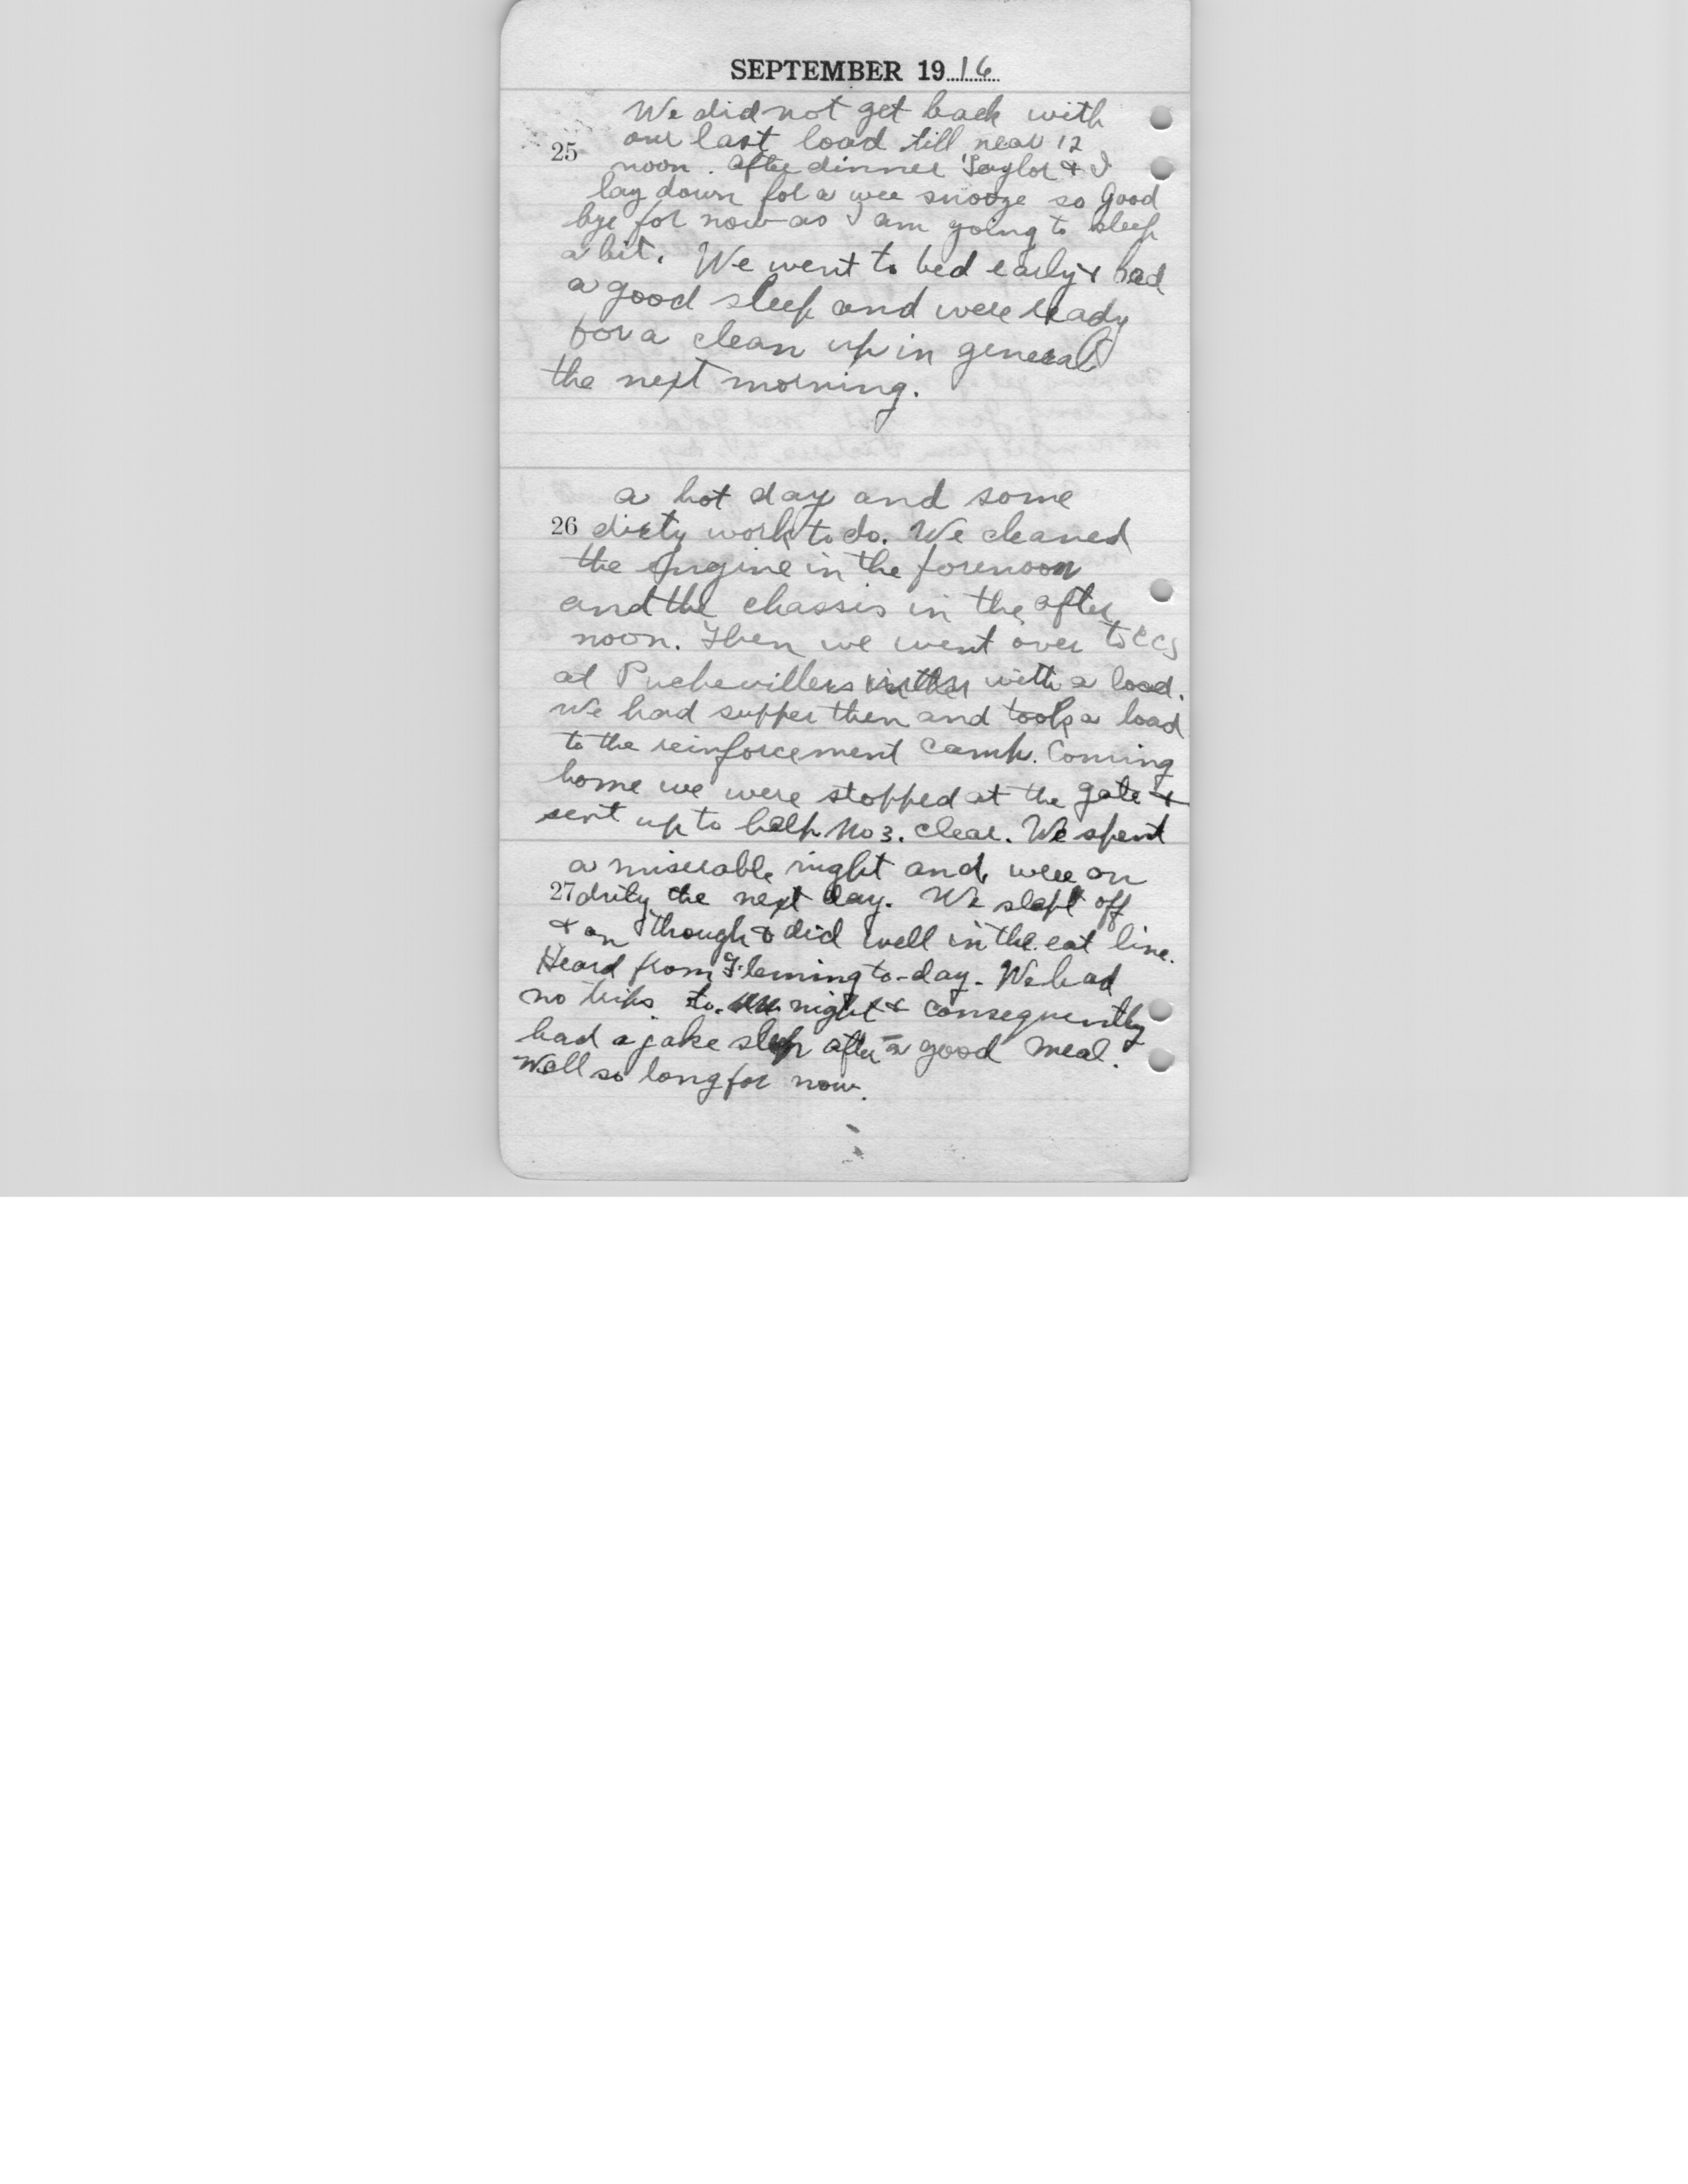 SEPTEMBER 1916
We did not get back with
25 our last load till near 12
noon. After dinner Taylor & I
lay down for a wee snooze so Good
bye for now as I am going to sleep
a bit. We went to bed early & had
a good sleep and were ready
for a clean up in general
the next morning.
a hot day and some
26 dirty work to do. We cleaned
the Engine in the forenoon
and the chassis in the after
noon. Then we went over to CCS
at Puchevillers with a load.
We had supper then and took a load
to the reinforcement camp. Coming
home we were stopped at the gate &
sent up to help No 3. clear. We spent
a miserable night and were on
27 duty the next day. We slept off
& on though & did well in the eat line.
Heard from Fleming to-day. We had
no trips to night & consequently
had a jake sleep after a good meal.
Well so long for now.